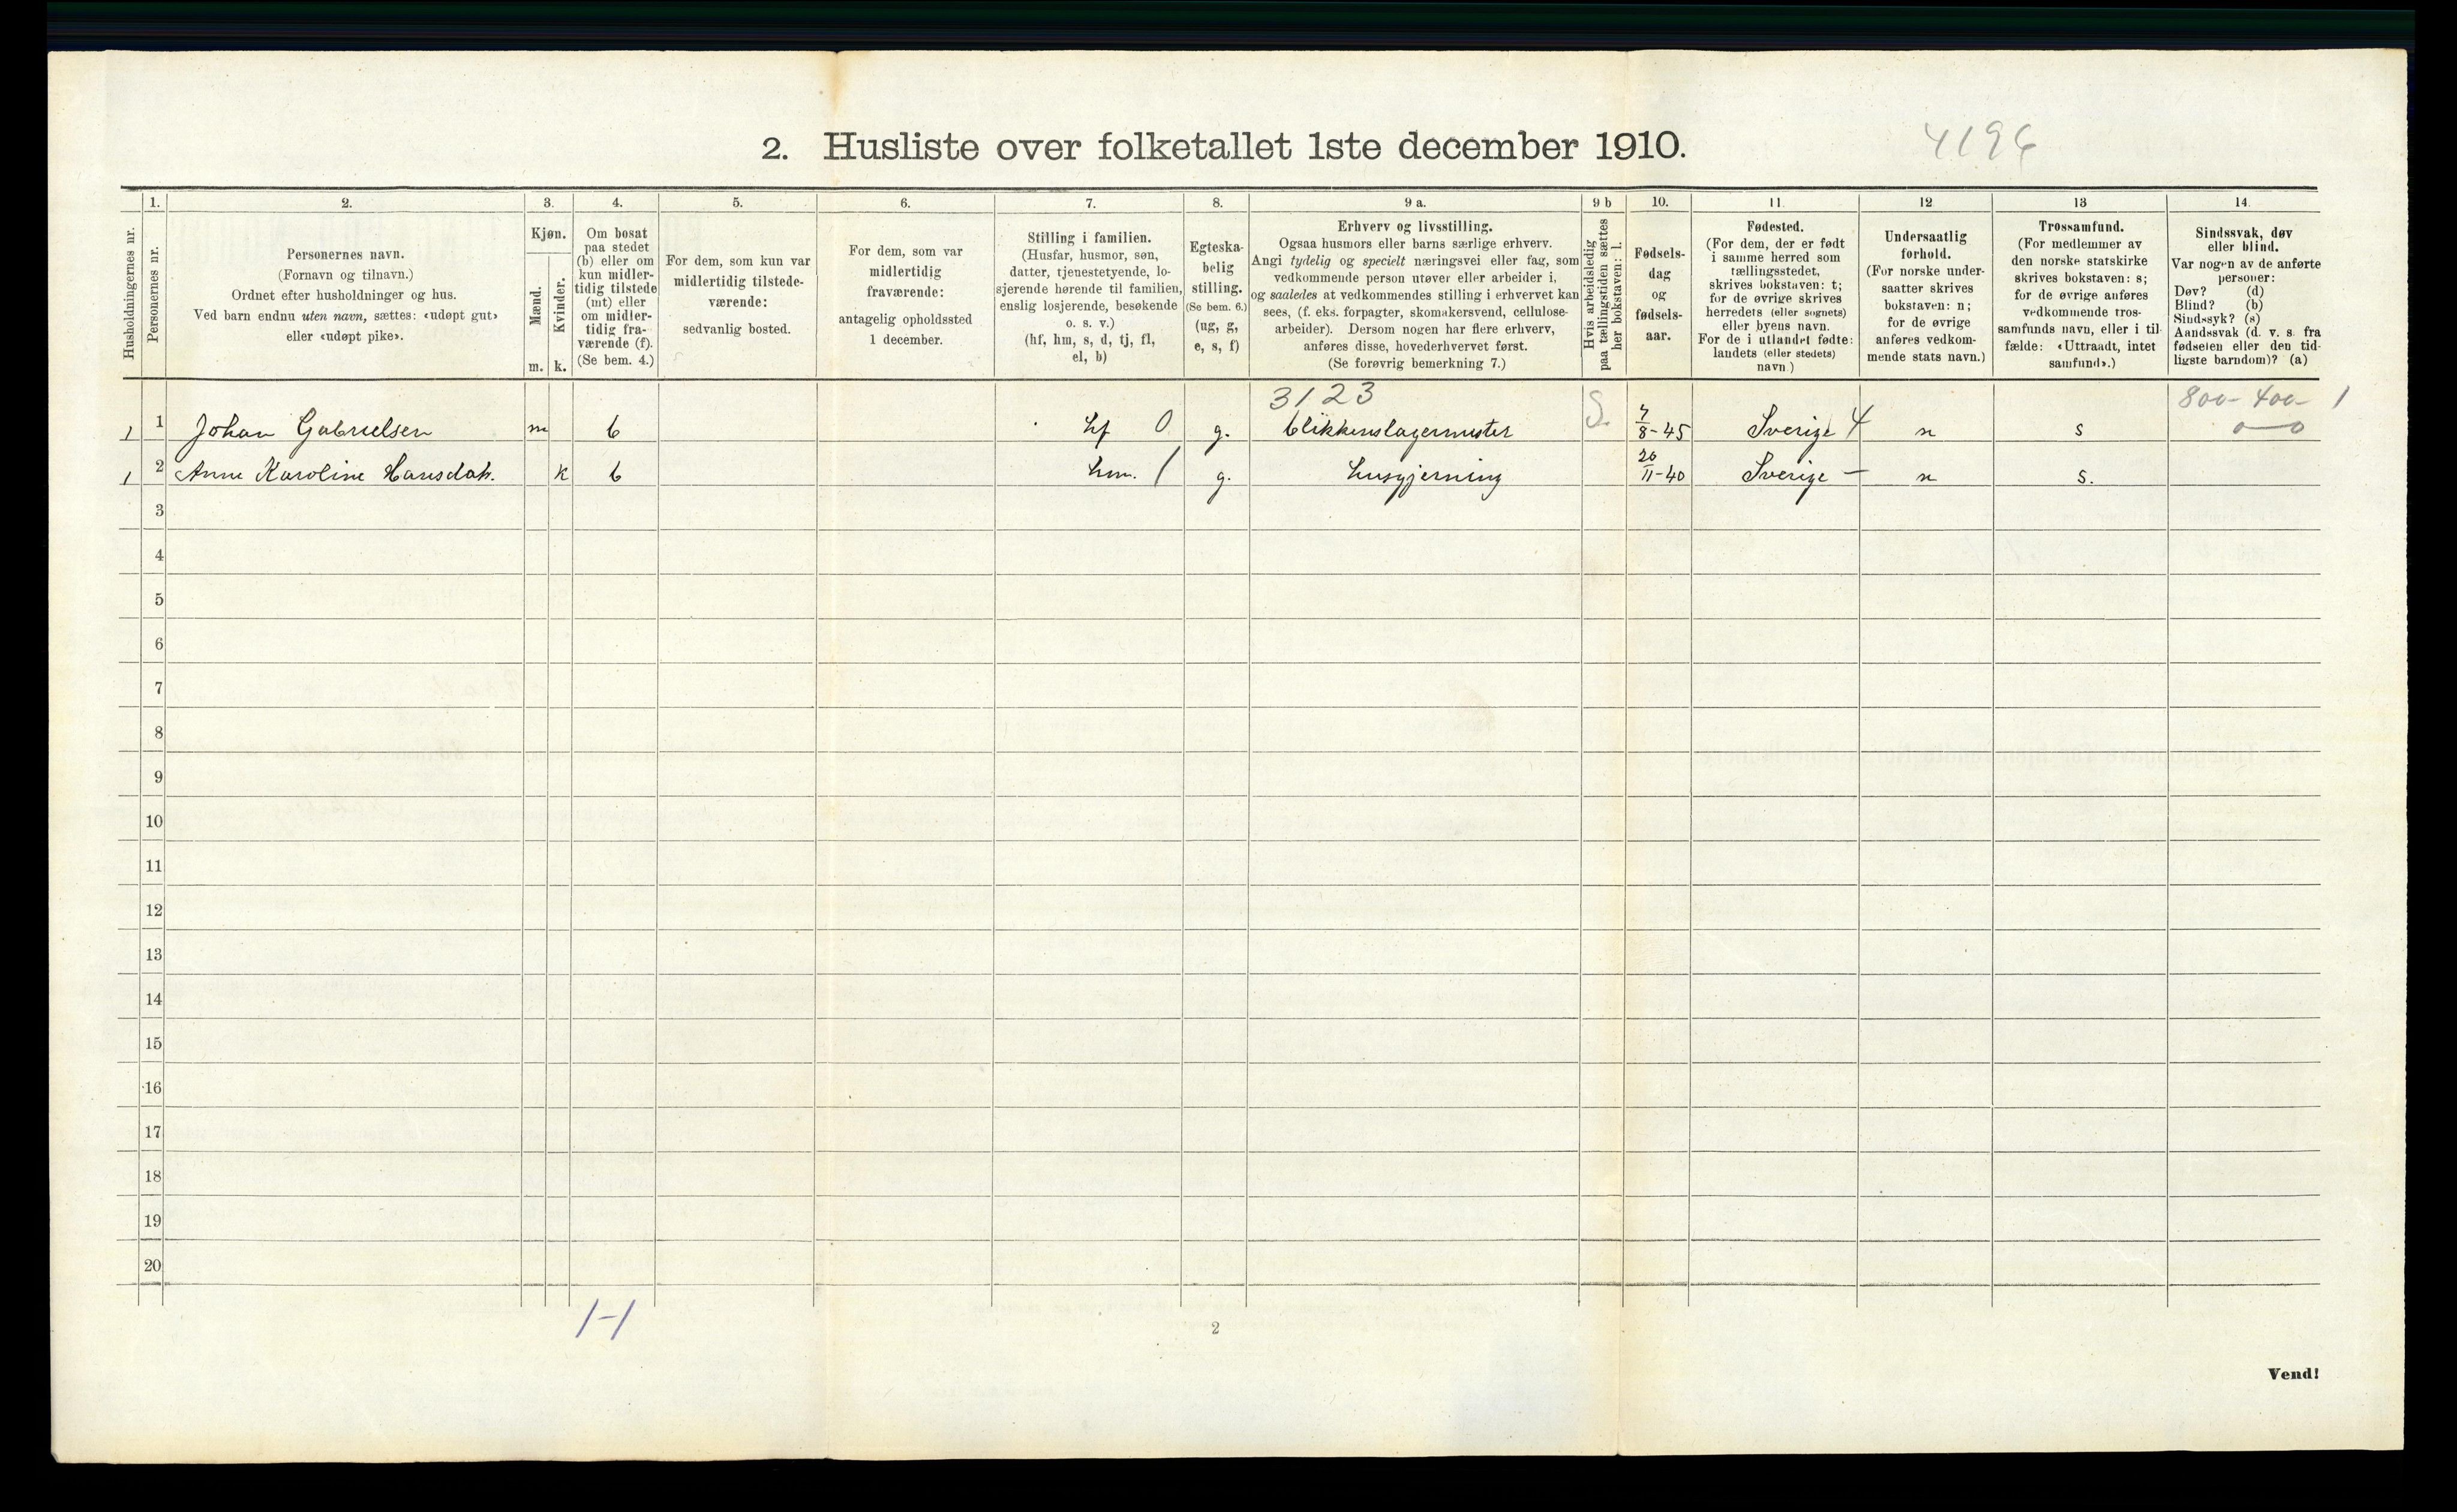 2. Husliste over folketallet 1ste december 1910.
4196
Husholdningernes nr.
1.
Personernes nr.
2.
Personernes navn.
(Fornavn og tilnavn.)
Ordnet efter husholdninger og hus.
Ved barn endnu uten navn, sættes: «udøpt gut»
eller «udøpt pike».
3.
Kjøn.
Mænd.
Kvinder.
m.
k.
4.
Om bosat
paa stedet
(b) eller om
kun midler-
tidig tilstede
(mt) eller
om midler-
tidig fra-
værende (f).
(Se bem. 4.)
5.
For dem, som kun var
midlertidig tilstede-
værende:
sedvanlig bosted.
6.
For dem, som var
midlertidig
fraværende:
antagelig opholdssted
1 december.
7.
Stilling i familien.
(Husfar, husmor, søn,
datter, tjenestetyende, lo-
sjerende hørende til familien,
enslig losjerende, besøkende
o. s. v.)
(hf, hm, s, d, tj, fl,
el, b)
8.
Egteska-
belig
stilling.
(Se bem. 6.)
(ug, g,
e, s, f)
9 a.
Erhverv og livsstilling.
Ogsaa husmors eller barns særlige erhverv.
Angi tydelig og specielt næringsvei eller fag, som
vedkommende person utøver eller arbeider i,
og saaledes at vedkommendes stilling i erhvervet kan
sees, (f. eks. forpagter, skomakersvend, cellulose-
arbeider). Dersom nogen har flere erhverv,
anføres disse, hovederhvervet først.
(Se forøvrig bemerkning 7.)
9 b
Hvis arbeidsledig
paa tællingstiden sættes
her bokstaven: l.
10.
Fødsels-
dag
og
fødsels-
aar.
11.
Fødested.
(For dem, der er født
i samme herred som
tællingsstedet,
skrives bokstaven: t;
for de øvrige skrives
herredets (eller sognets)
eller byens navn.
For de i utlandet fødte:
landets (eller stedets)
navn.)
12
Undersaatlig
forhold.
(For norske under-
saatter skrives
bokstaven: n;
for de øvrige
anføres vedkom-
mende stats navn.)
13
Trossamfund.
(For medlemmer av
den norske statskirke
skrives bokstaven: s;
for de øvrige anføres
vedkommende tros-
samfunds navn, eller i til-
fælde: «Uttraadt, intet
samfund».)
14.
Sindssvak, døv
eller blind.
Var nogen av de anførte
personer:
Døv? (d)
Blind? (b)
Sindssyk? (s)
Aandssvak (d. v. s. fra
fødselen eller den tid-
ligste barndom)? (a)
3123
800- 400- 1
1 1 Johan Gabrielsen m b hf 0 g. blikkenslagermester S. 7/8-45 Sverige 4 n s 0—0
1 2 Anne Karoline Hansdatr. k b hm. 1 g. husgjerning 20/11-40 Sverige — n s.
3
4
5
6
7
8
9
10
11
12
13
14
15
16
17
18
19
20
1-1
2
Vend!